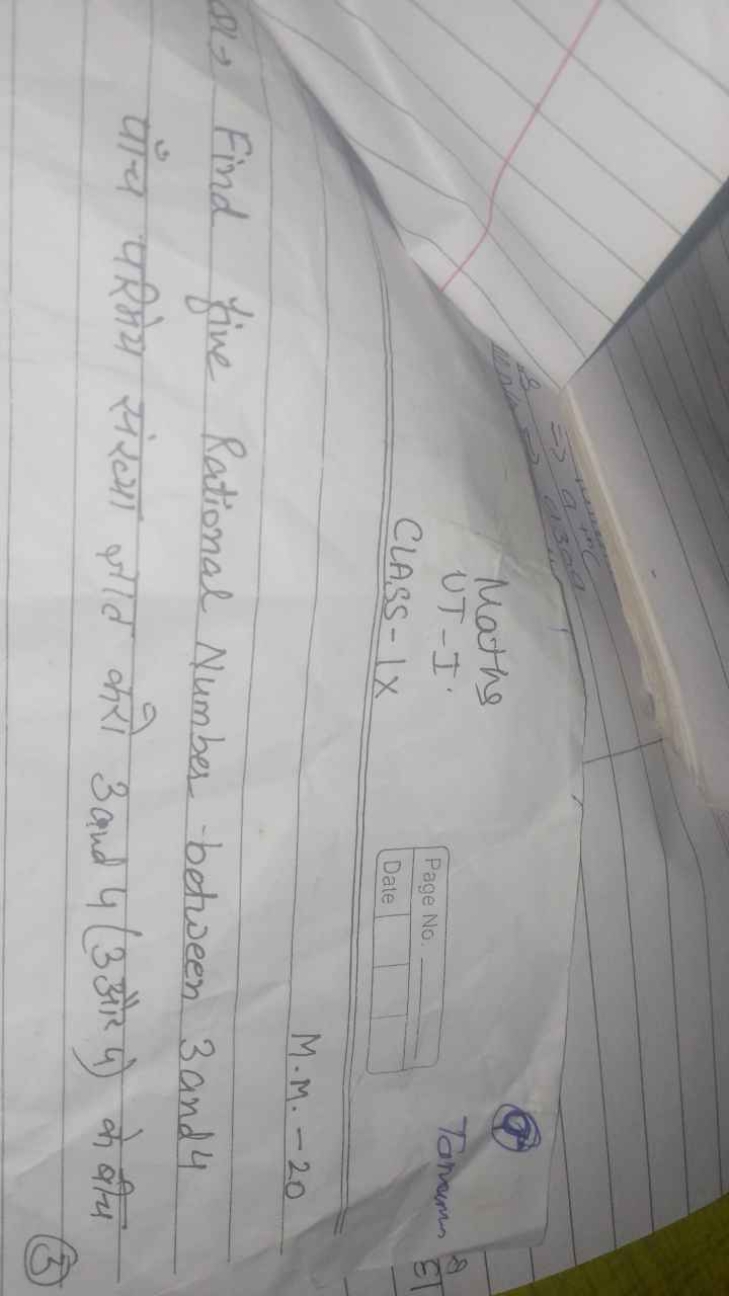 Maths
UT-I.
CLASS-IX
Page No.
Date
M.M.-20
Find five Rational Number between 3 and 4
पाँच परिमेय संख्या ज्ञात करो 3 and 4 (3 और 4) के बीच
3